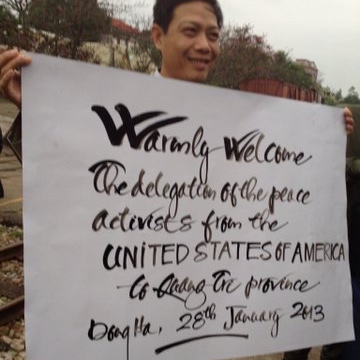 Warmly Welcome
The delegation of the peace
activists from the
UNITED STATES OF AMERICA
to Quang Tri province
Dong Ha, 28th January 2013